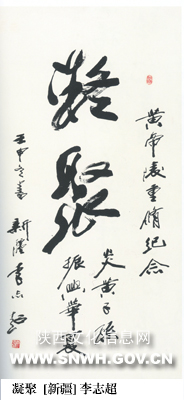 黄帝陵重脩纪念
炎黄子孫
振興華夏
凝聚
壬申
新疆李志超
陕西文化信息网
WWW.SNWH.GOV.CN
凝聚 [新疆] 李志超